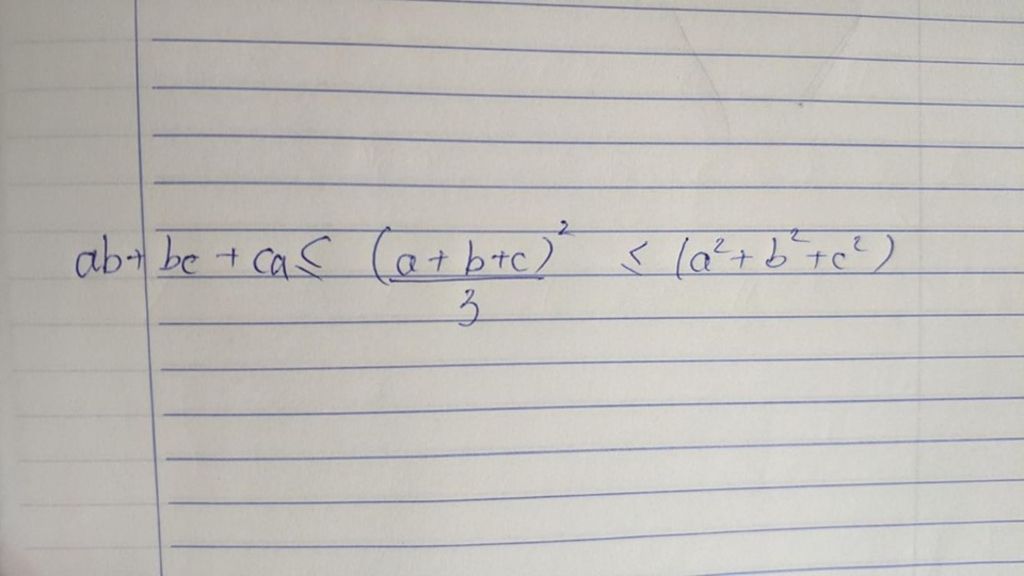 ab+ bc + ca ≤ (a + b+c)² / 3 ≤ (a²+ b²+c²)